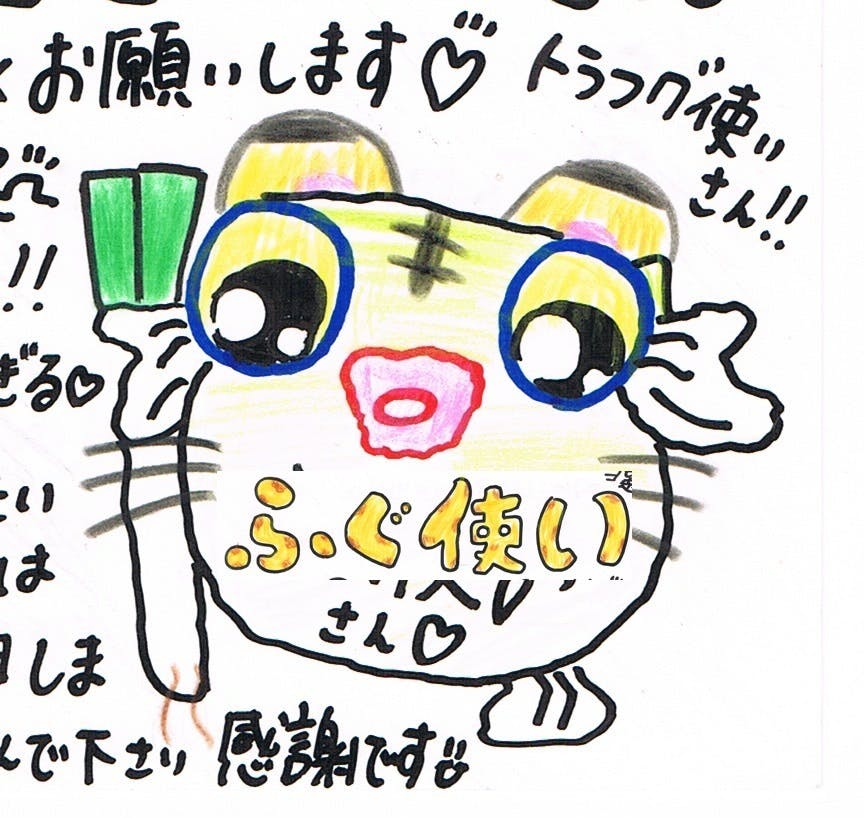 お願いします♡
トラフグ使い
さん!!
!!
ぎる♡
ふぐ使い
さん♡
い
は
しま
んで下さい 感謝です